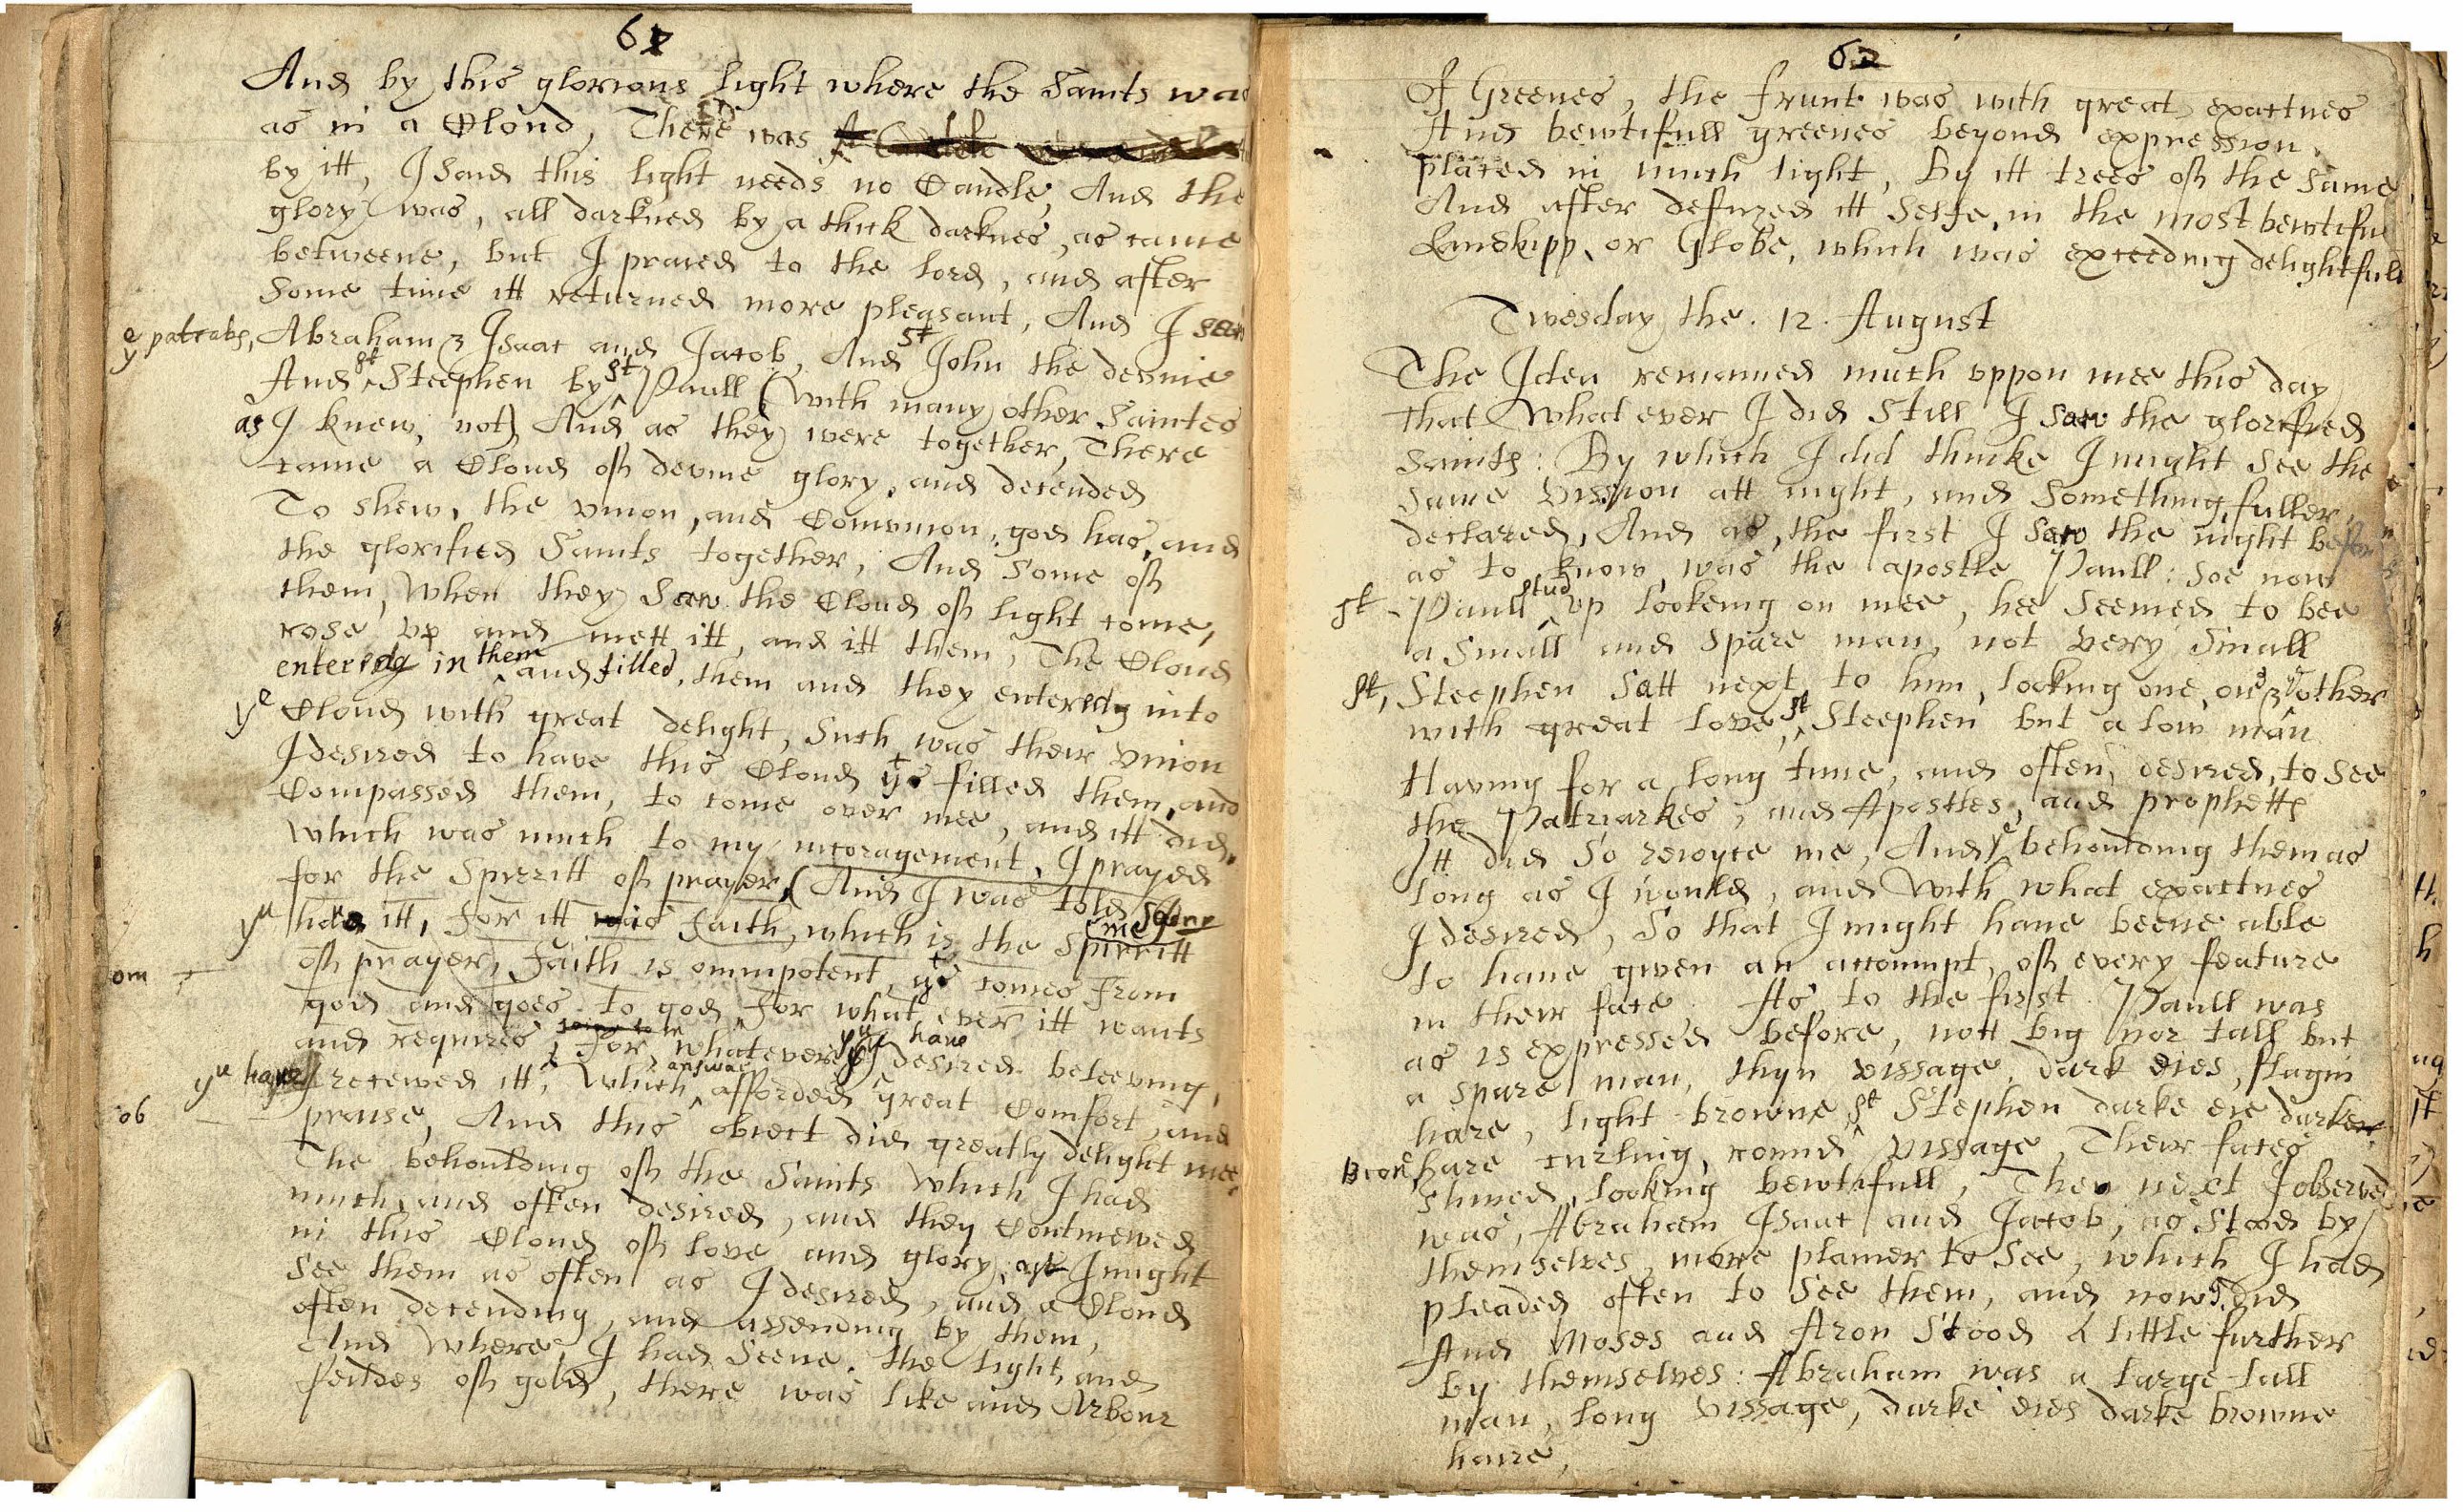 61
And by this glorious light where the Saints was
as in a Cloud, There was
by itt, I said this light needs no Candle, And the
glory was, all darkned by a thick darknes, as came
betweene, but I praied to the lord, and after
Some time itt returned more pleasant, And I saw
ye patriabs, Abraham & Isaac and Jacob, And St John the devine
And St Steephen by St Paull (with many other Saintes
as I knew, not) And as they were together, There
came a Cloud off devine glory, and decended
To shew, the union, and Comunion, god has, and
the glorified Saints together, And Some off
them, when they Saw the Cloud off light come,
rose up and mett itt, and itt them, The Cloud
entered in them and filled, them and they entered into
ye Cloud with great delight, Such was their Union
I desired to have this Cloud yt filled them, and
Compassed them, to come over mee, and itt did,
which was much to my incoragement, I prayed
for the Spirritt off prayer, (And I was told
yu have itt, for itt is Faith, which is the Spirritt
off prayer, Faith is omnipotent, yt comes From
god and goes to god, For what ever itt wants
and requires, For, whatever yu have desired beleeving,
yu have received itt, Which answar afforded great Comfort, and
praise, And this obiect did greatly delight mee,
The behoulding off the Saints which I had
much, and often desired, and they Contineued
in this Cloud off love and glory, yt I might
See them as often as I desired, and a Cloud
often decending, and assending by them,
And where I had Seene, the light, and
feildes off gold, there was like and Arbour
om
ob
62
Off Greenes, the frunt was with great exactnes
And bewtifull greenes beyond expression,
placed in much light, By itt trees off the same
And after defuzed itt Selfe, in the most bewtifull
Landskipp, or Globe, which was exceeding delightfull
Twesday the. 12. August
The Idea remained much uppon mee this day
that what ever I did Still I Saw the glorified
Saints: By which I did thinke I might See the
same Vission att night, and Something, fuller,
declared, And as, the first I Saw the night before
as to know, was the apostle Paull: Soe now
St - Paull stud up lookeing on mee, hee Seemed to bee
a Small and Spare man, not very Small
St, Steephen Satt next to him, looking one, on ye other
with great love, St Steephen but a low man
Having for a long time, and often, desired, to See
the Patriarkes, and Apostles, and prophetts
Itt did So reioyce me, And ye behoulding them as
long as I would, and With what exactnes
I desired, So that I might have beene able
to have given an accoumpt, off every feature
in their face. As to the first. Paull was
as is expressed before, nott big nor tall but
a spare man, thyn vissage, dark eies, flagin
hare, light browne, St Stephen darke eie darke
Brone, hare curling, round vissage, Their faces
Shined, looking bewtifull, Then next I observed
was, Abraham Isaac and Jacob, as Stood by
themselves, more plainer to See, which I had
pleaded often to See them, and now I did
And Moses and Aron Stood a little further
by themselves: Abraham was a large tall
man, long vissage, darke eies darke browne
haire,